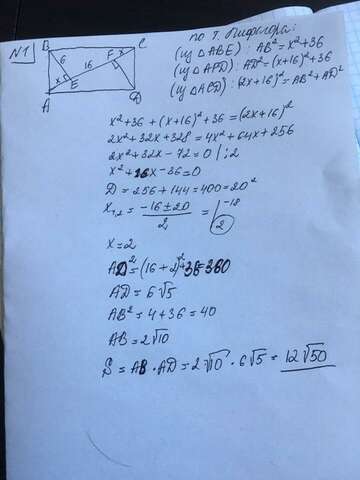 N1
B
C
6
16
F
x
x
E
A
D
по т. Пифагора:
(из △ABE): AB² = x² + 36
(из △AFD): AD² = (x+16)² + 36
(из △ACD): (2x+16)² = AB² + AD²
x² + 36 + (x+16)² + 36 = (2x+16)²
2x² + 32x + 328 = 4x² + 64x + 256
2x² + 32x − 72 = 0 | :2
x² + 16x − 36 = 0
D = 256 + 144 = 400 = 20²
x₁,₂ = (−16 ± 20)/2 = [−18
2
x = 2
AD² = (16+2)² + 36 = 360
AD = 6√5
AB² = 4 + 36 = 40
AB = 2√10
S = AB · AD = 2√10 · 6√5 = 12√50